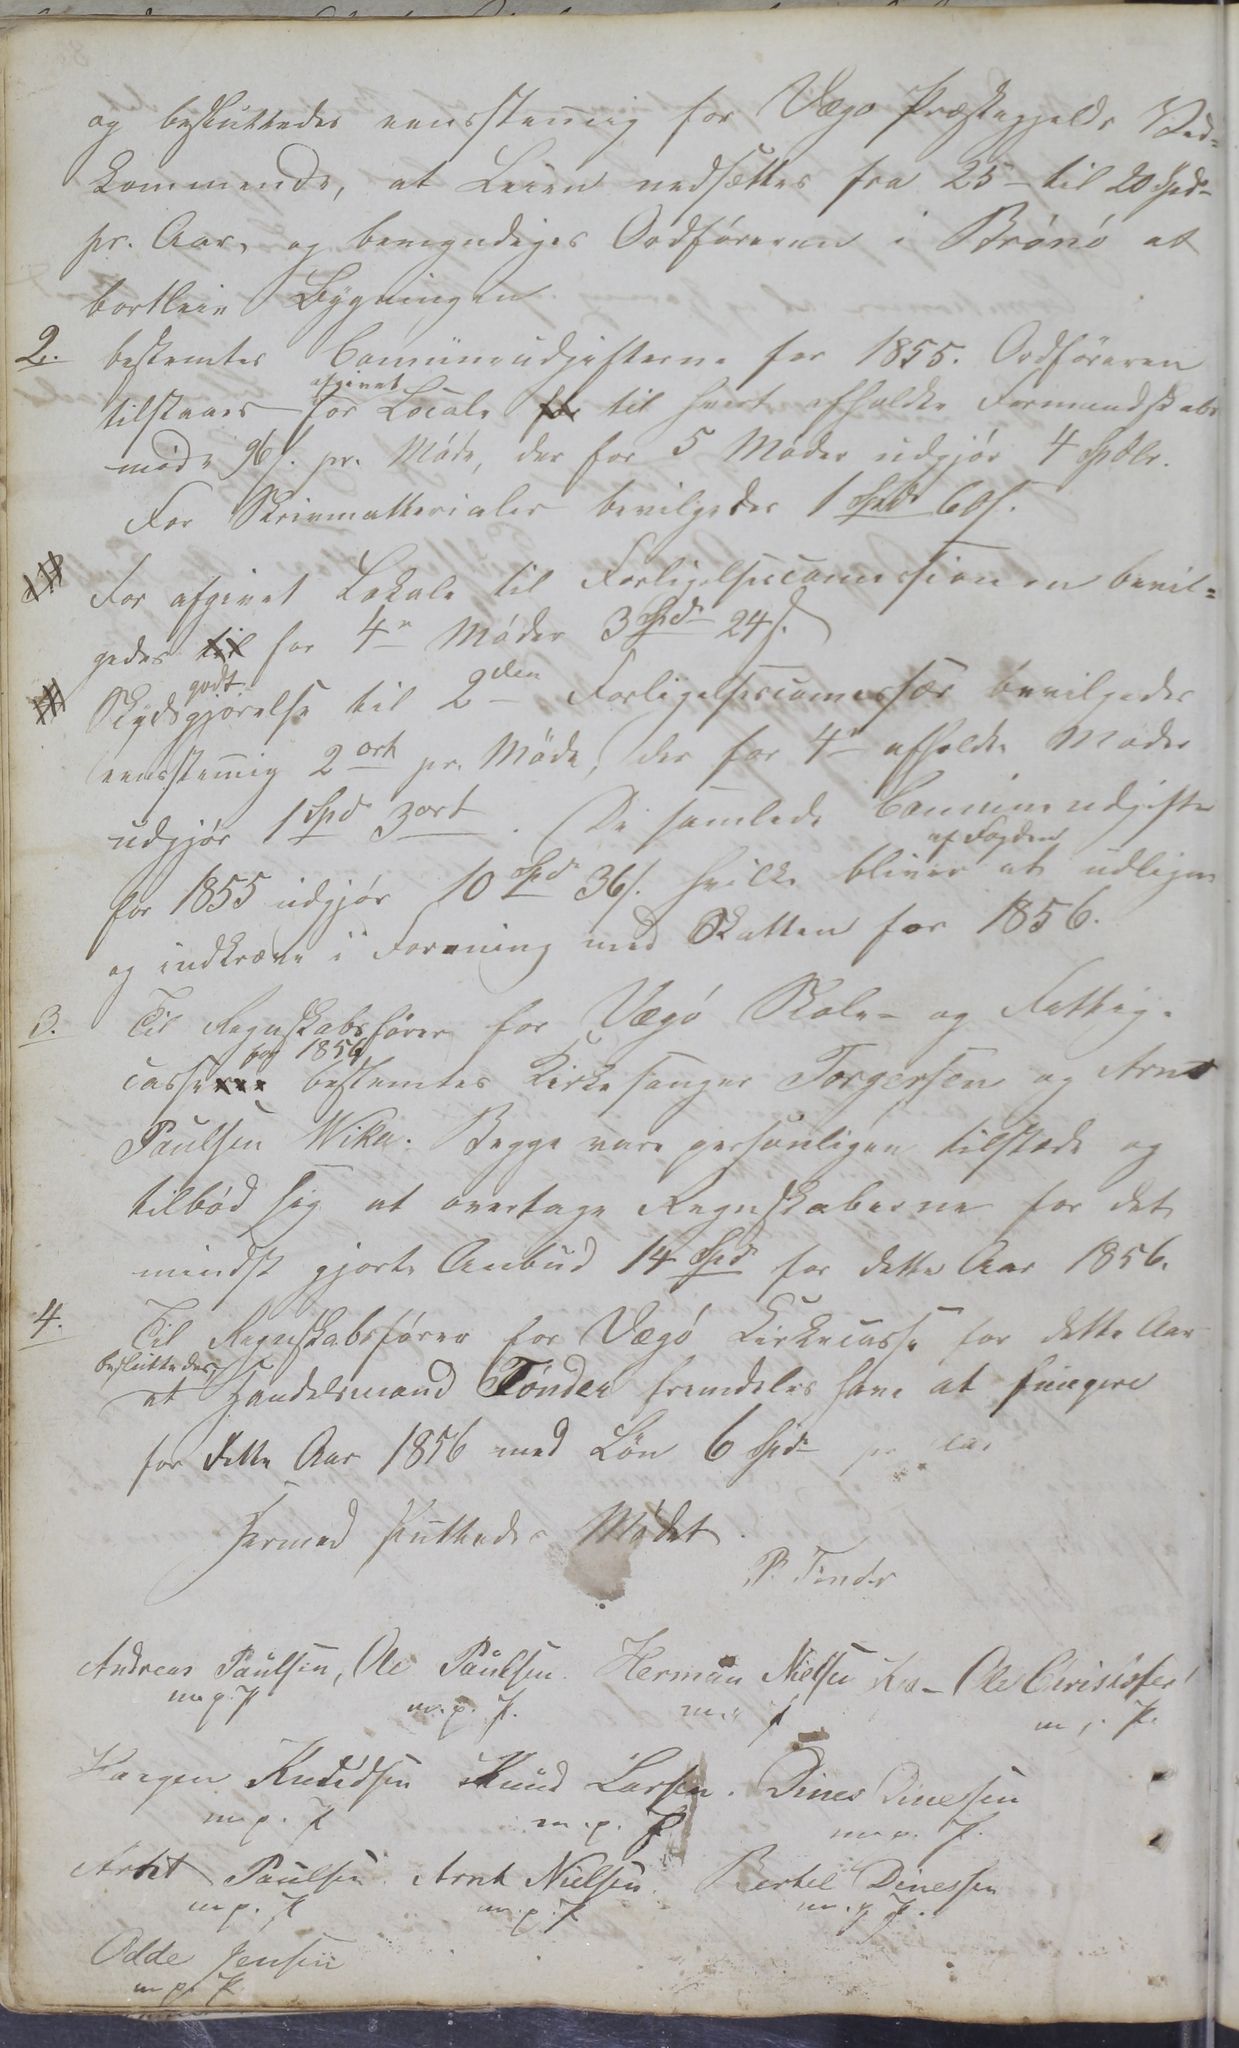 og besluttedes eensstemig for Vægø Præstegjelds Ved-
kommende, at Leien nedsættes fra 25 til 20 Spd
pr. Aar, og bemyndiges Ordføreren i Brönö at
bortleie Bygningen
2. bestemtes Comüneudgifterne for 1855. Ordføreren
tilstaaes for afgivet Locale til hvert afholdte Formandskabs
møde 96 s. pr. Møde, der for 5 Møder udgjør 4 Spdlr.
For Skrivmatterialer bevilgedes 1 Spd 60 s.
For afgivet Lokale til Forligelsescomissionen bevil=
gedes for 4 Møder 3 Spd 24 s.
Skydsgodtgjørelse til 2den Forligelsescomissær bevilgedes
eensstemig 2 ort pr. Møde, der for 4 afholdte Møder
udgjør 1 Spd 3 ort. De samlede Comüneudgifter
for 1855 udgjør 10 Spd 36 s. hvilke bliver af Fogden at udligne
og indkræve i Forening med Skatten for 1856.
3. Til Regnskabsfører for Vægö Skole- og Fattig-
casse for 1856 bestemtes Kirkesanger Torgersen og Arnt
Paulsen Wika. Begge vare personligen tilstede og
tilbød sig at overtage Regnskaberne for det
mindst gjorte Anbud 14 Spd for dette Aar 1856.
4. Til Regnskabsfører for Vægö Kirkecasse for dette Aar
besluttedes at Handelsmand Tönder fremdeles have at fungere
for dette Aar 1856 med Løn 6 Spd pr Aar
Hermed sluttedes Mødet.
P. Tønder
Andreas Paulsen, Ole Paulsen. Herman Nielsen Ole Christofer
m. p. P. m. p. P. m. P. m. p. P.
Haagen Knudsen Knud Larsen. Dines Dinessen
m. p. P. m. p. P. m. p. P.
Arnt Paulsen. Arnt Nielsen. Bertel Dinessen
m. p. P. m. p. P. m. p. P.
Odde Jensen
m. p. P.